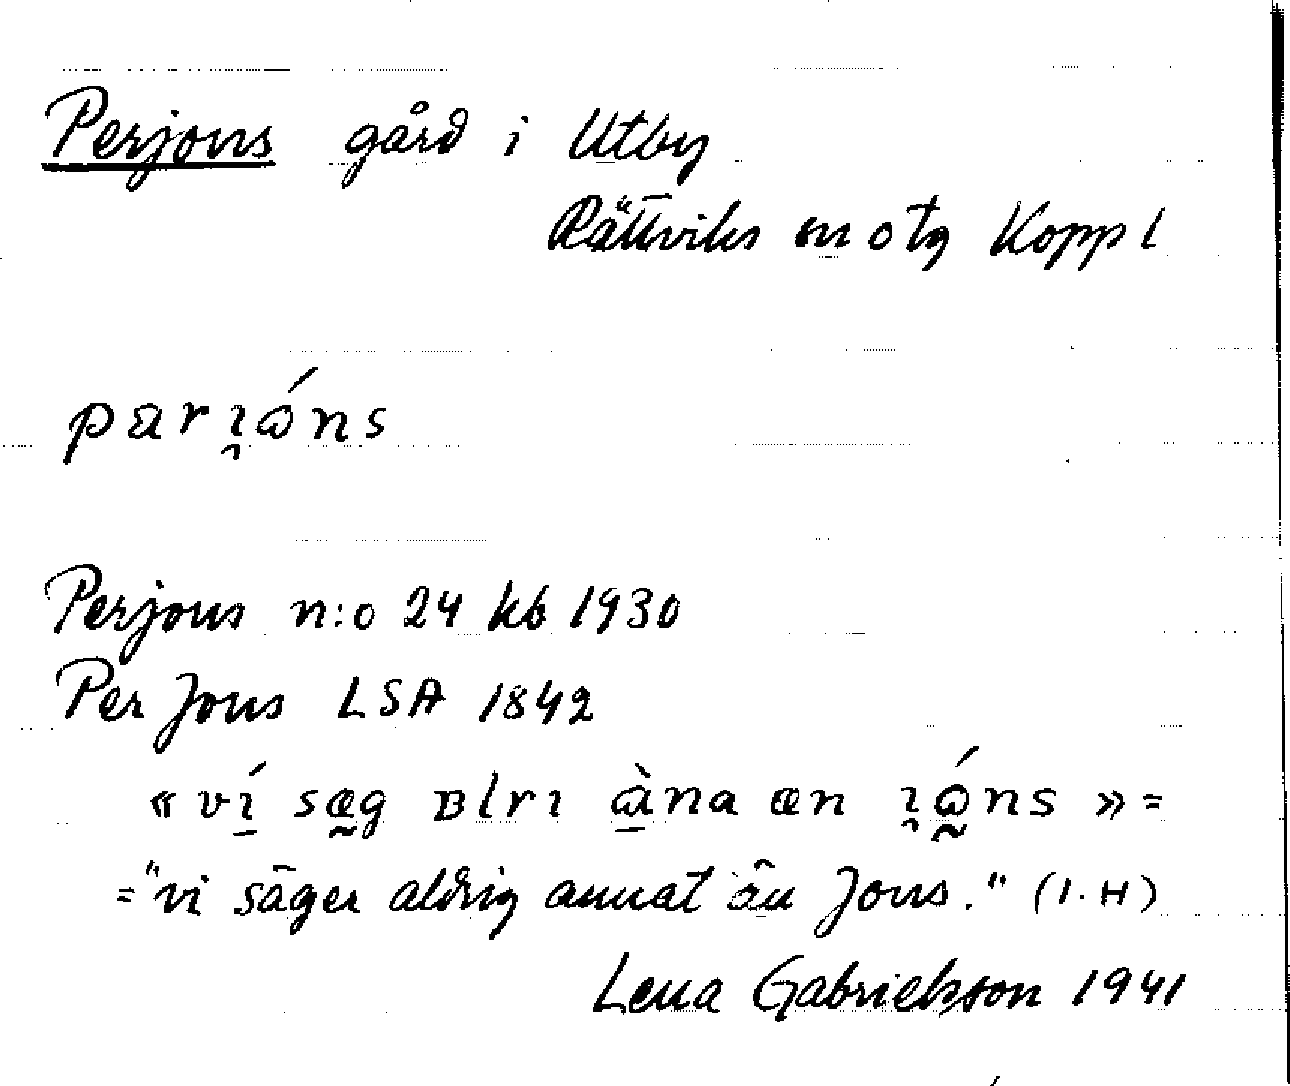 Perjons gård i Utby
Rättviks sn o tg Kopp l
parı̯ɷ́ns
Perjons n:o 24 kb 1930
Per Jons LSA 1842
«vı̱́ sæ̰g ᴃlrı ɷ̱̀na æn ı̯ɷ̰́ns» =
= "vi säger aldrig annat än Jons." (I. H)
Lena Gabrielsson 1941